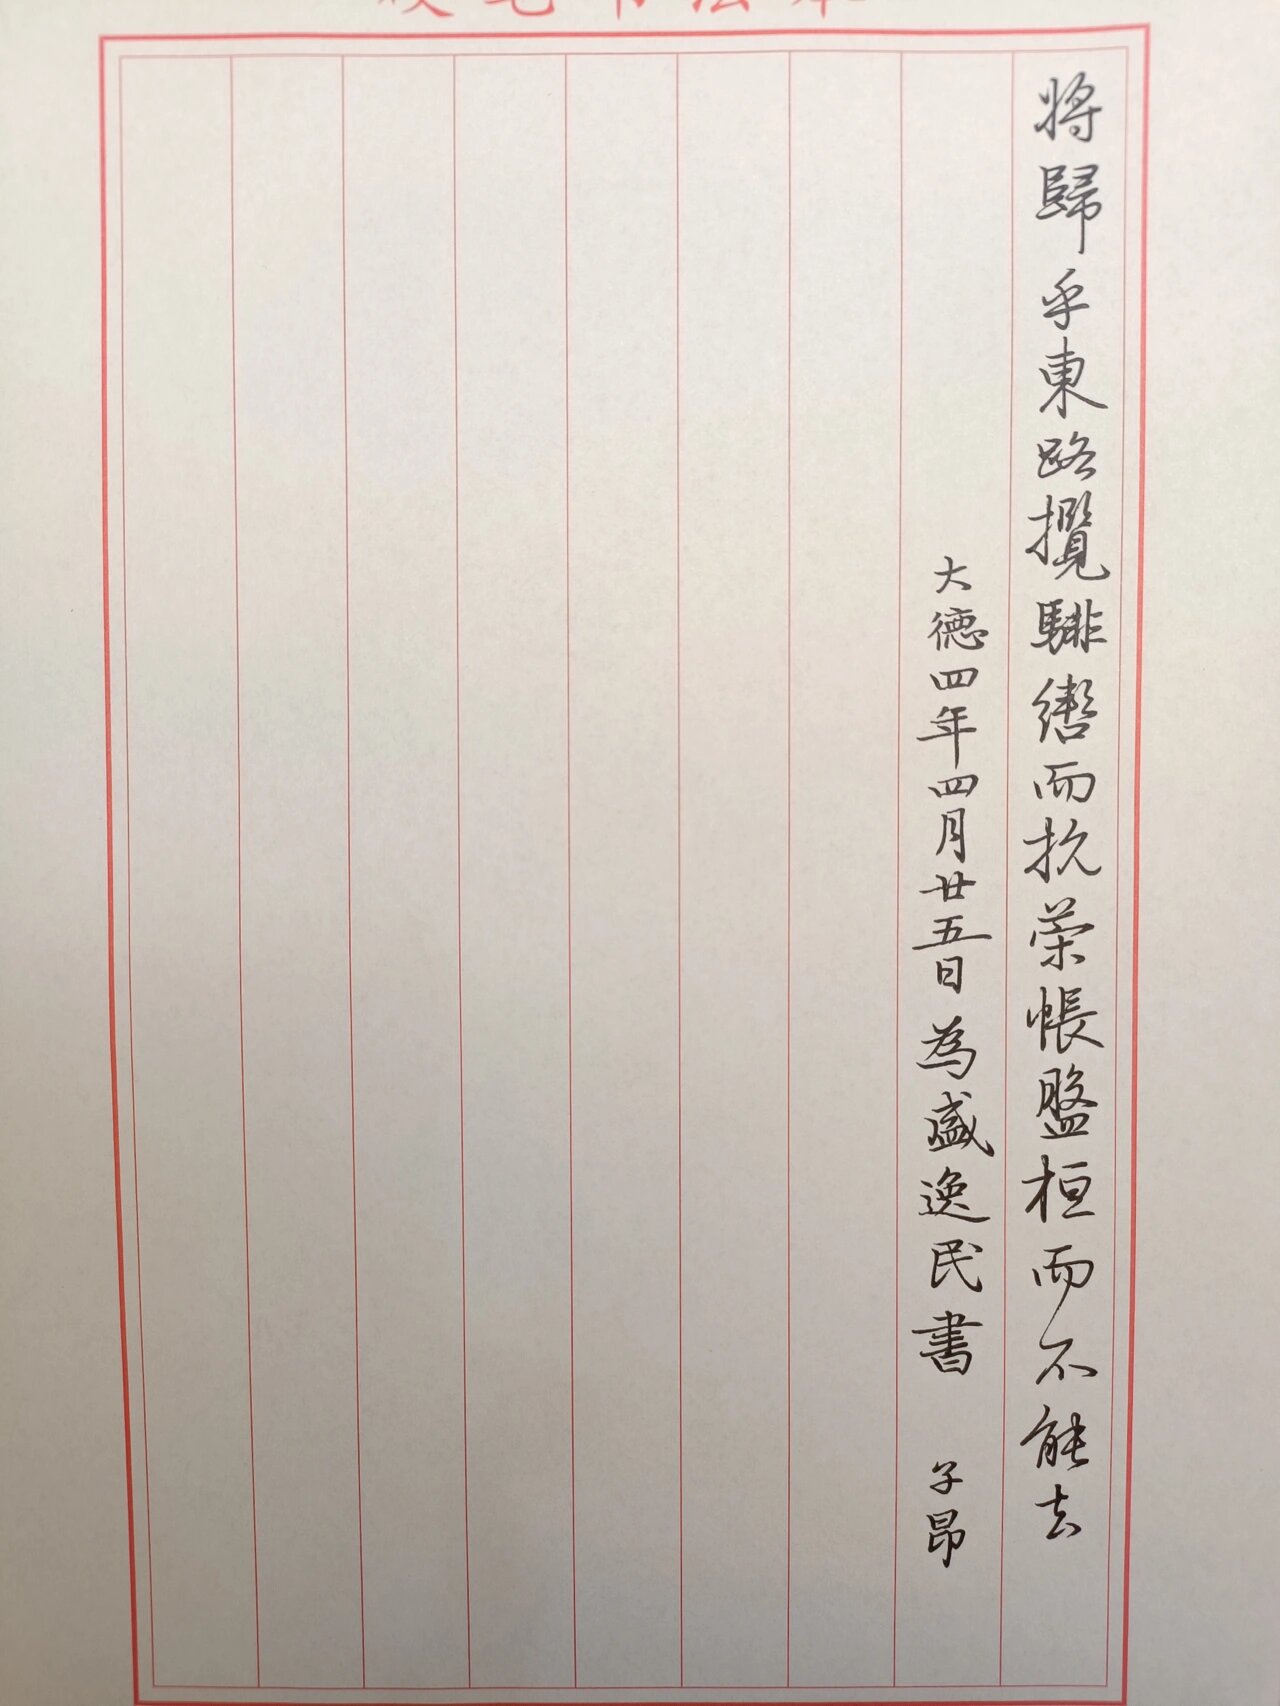 硬笔书法本
將歸乎東路攬騑轡而抗策悵盤桓而不能去
大德四年四月廿五日為盛逸民書 子昂